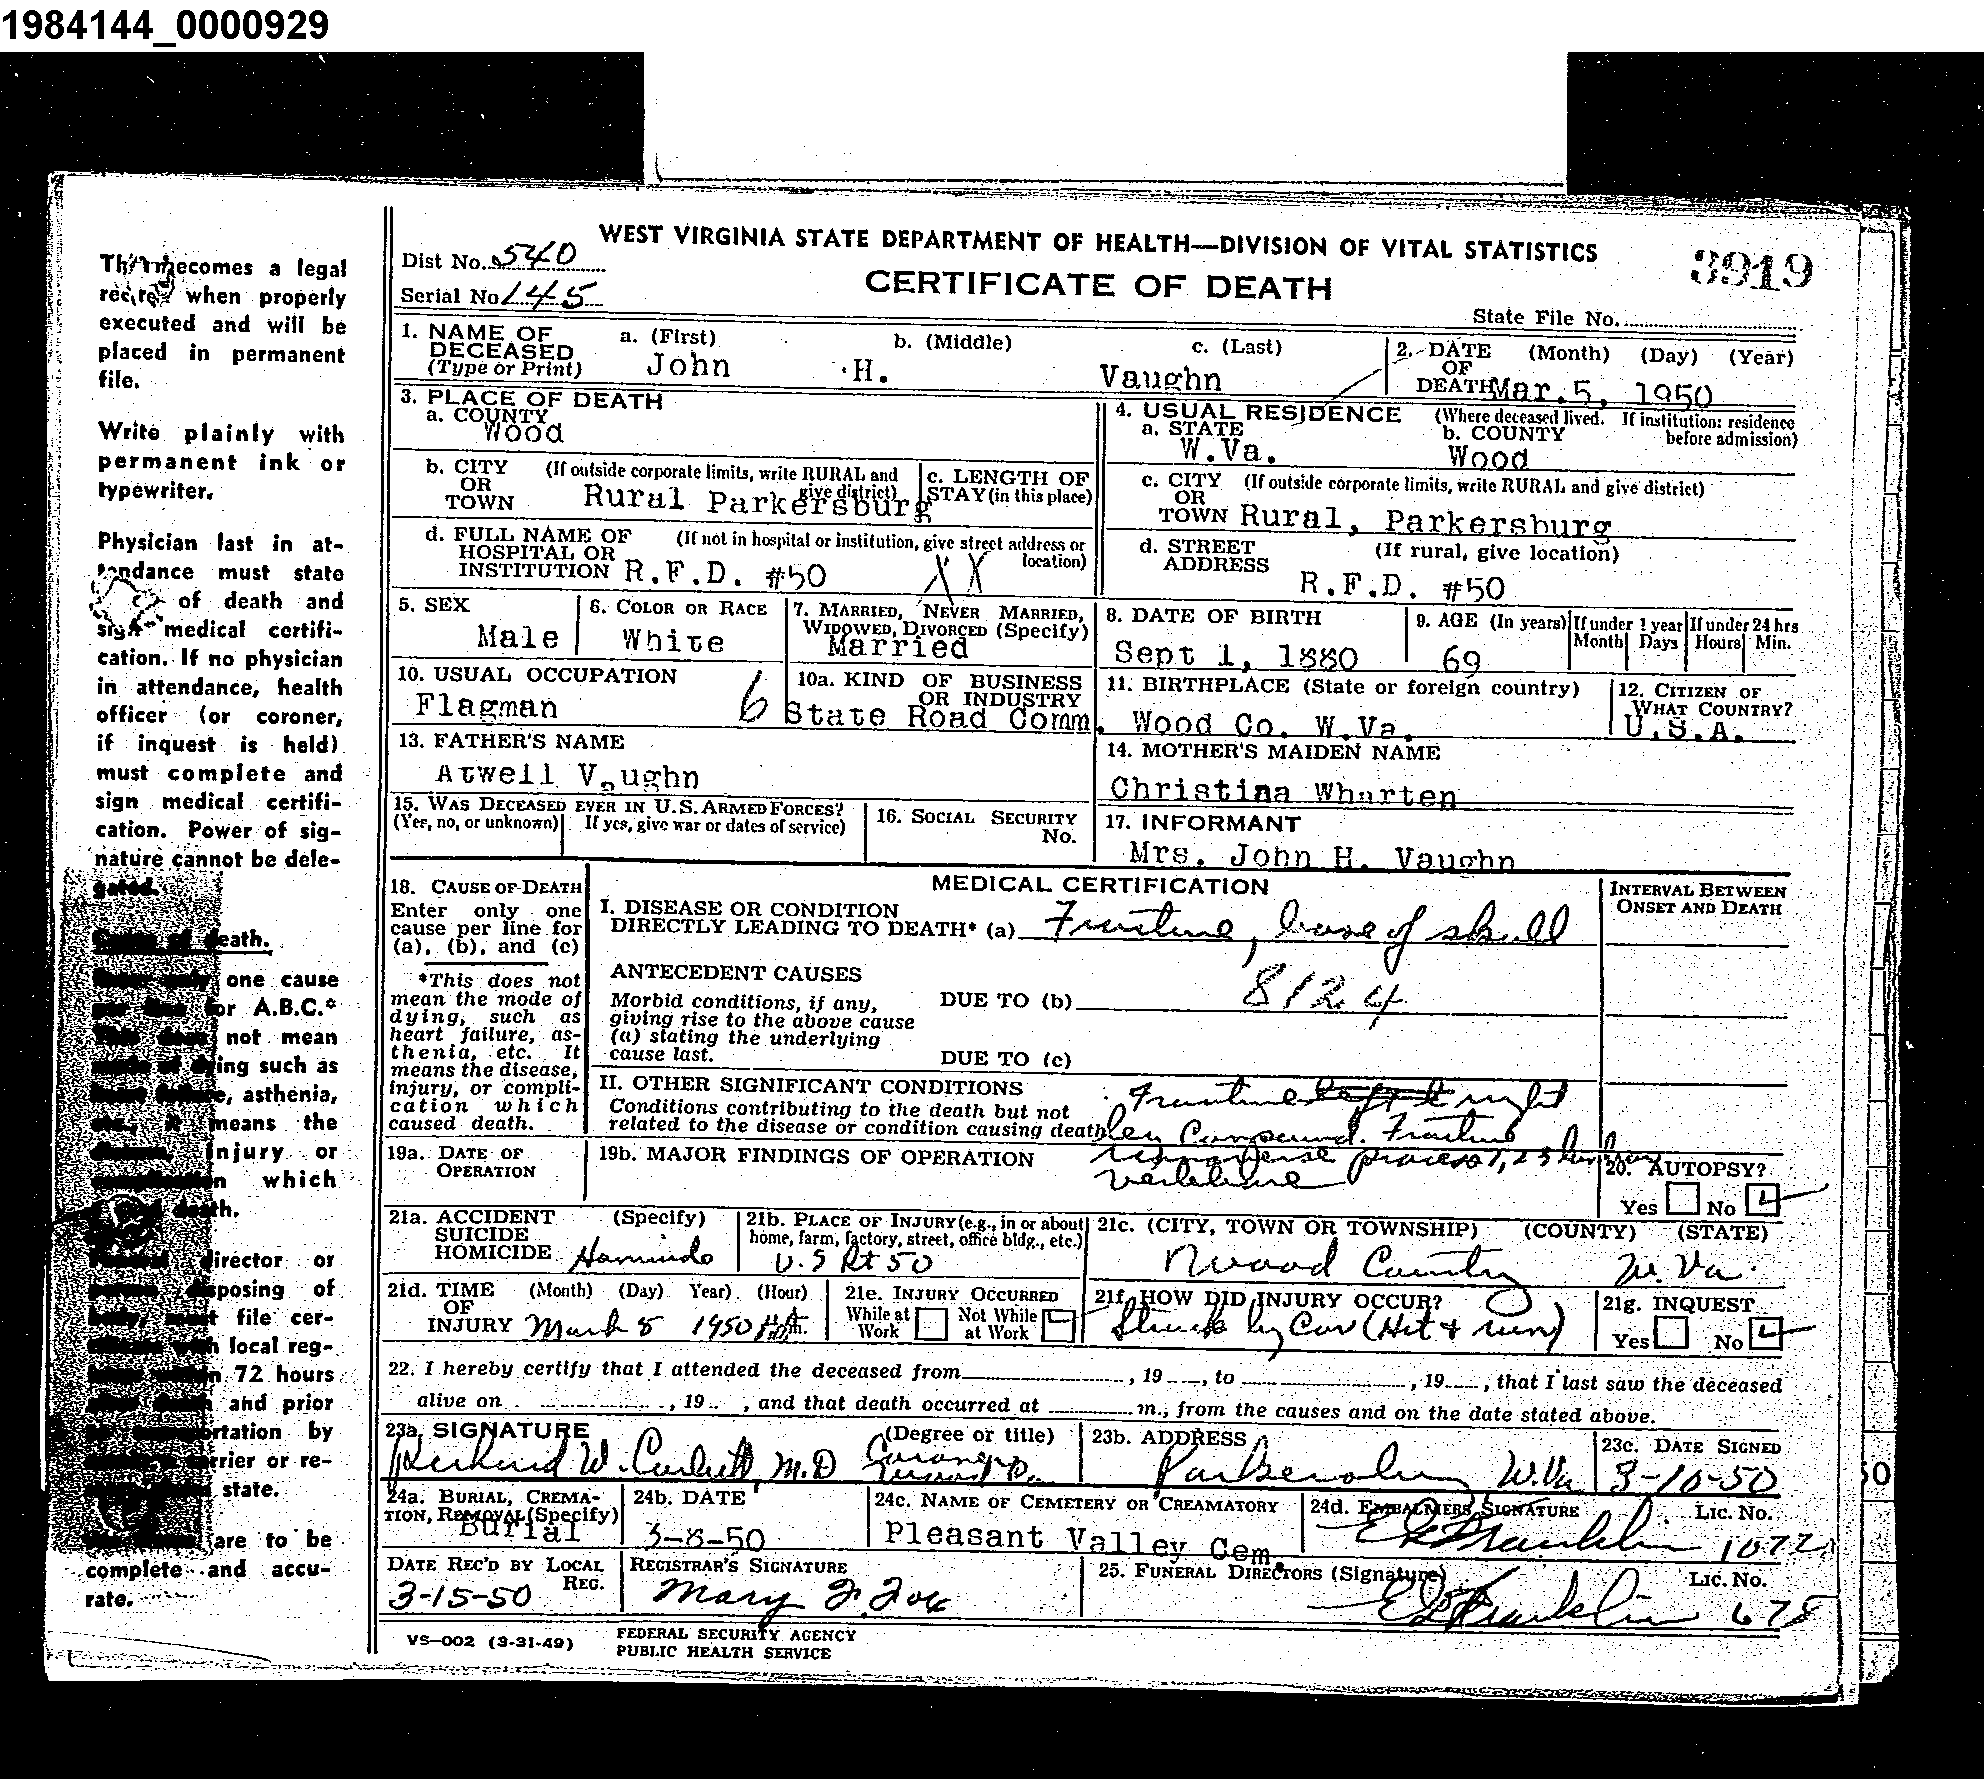 1984144_0000929
WEST VIRGINIA STATE DEPARTMENT OF HEALTH—DIVISION OF VITAL STATISTICS
Dist No. 540
CERTIFICATE OF DEATH
3919
Serial No 145
State File No.
1. NAME OF DECEASED (Type or Print) a. (First) b. (Middle) c. (Last)
John H. Vaughn
2. DATE OF DEATH (Month) (Day) (Year)
Mar. 5, 1950
3. PLACE OF DEATH
a. COUNTY
Wood
4. USUAL RESIDENCE (Where deceased lived. If institution: residence before admission)
a. STATE W.Va.
b. COUNTY Wood
b. CITY OR TOWN (If outside corporate limits, write RURAL and give district)
Rural Parkersburg
c. LENGTH OF STAY (in this place)
c. CITY OR TOWN (If outside corporate limits, write RURAL and give district)
Rural, Parkersburg
d. FULL NAME OF HOSPITAL OR INSTITUTION (If not in hospital or institution, give street address or location)
R.F.D. #50 XX
d. STREET ADDRESS (If rural, give location)
R.F.D. #50
5. SEX
Male
6. COLOR OR RACE
White
7. MARRIED, NEVER MARRIED, WIDOWED, DIVORCED (Specify)
Married
8. DATE OF BIRTH
Sept 1, 1880
9. AGE (In years)
69
If under 1 year Month Days
If under 24 hrs Hours Min.
10. USUAL OCCUPATION
Flagman 6
10a. KIND OF BUSINESS OR INDUSTRY
State Road Comm.
11. BIRTHPLACE (State or foreign country)
Wood Co. W.Va.
12. CITIZEN OF WHAT COUNTRY?
U.S.A.
13. FATHER'S NAME
Atwell Vaughn
14. MOTHER'S MAIDEN NAME
Christina Wharten
15. WAS DECEASED EVER IN U.S. ARMED FORCES?
(Yes, no, or unknown) If yes, give war or dates of service)
16. SOCIAL SECURITY No.
17. INFORMANT
Mrs. John H. Vaughn
18. CAUSE OF DEATH
Enter only one
cause per line for
(a), (b), and (c)
*This does not
mean the mode of
dying, such as
heart failure, as-
thenia, etc. It
means the disease,
injury, or compli-
cation which
caused death.
MEDICAL CERTIFICATION
INTERVAL BETWEEN ONSET AND DEATH
I. DISEASE OR CONDITION
DIRECTLY LEADING TO DEATH* (a) Fracture, base of skull
ANTECEDENT CAUSES
Morbid conditions, if any,
giving rise to the above cause
(a) stating the underlying
cause last.
DUE TO (b)
8124
DUE TO (c)
II. OTHER SIGNIFICANT CONDITIONS
Conditions contributing to the death but not
related to the disease or condition causing death
Fracture left right
leg Compound. Fracture
transverse process 1, 2 3 lumbar
vertebrae
19a. DATE OF OPERATION
19b. MAJOR FINDINGS OF OPERATION
20. AUTOPSY?
Yes No
21a. ACCIDENT SUICIDE HOMICIDE (Specify)
Homicide
21b. PLACE OF INJURY (e.g., in or about home, farm, factory, street, office bldg., etc.)
U.S Rt 50
21c. (CITY, TOWN OR TOWNSHIP) (COUNTY) (STATE)
Wood County W. Va.
21d. TIME OF INJURY (Month) (Day) Year) (Hour)
March 5 1950
21e. INJURY OCCURRED
While at Work Not While at Work
21f. HOW DID INJURY OCCUR?
Struck by Car (Hit & run)
21g. INQUEST
Yes No
22. I hereby certify that I attended the deceased from , 19 , to , 19 , that I last saw the deceased
alive on , 19 , and that death occurred at m., from the causes and on the date stated above.
23a. SIGNATURE (Degree or title)
W. Corbitt M.D Coroner
23b. ADDRESS
Parkersburg W.Va
23c. DATE SIGNED
3-10-50
24a. BURIAL, CREMATION, REMOVAL (Specify)
Burial
24b. DATE
3-8-50
24c. NAME OF CEMETERY OR CREAMATORY
Pleasant Valley Cem.
24d. EMBALMERS SIGNATURE Lic. No.
Franklin 1077
DATE REC'D BY LOCAL REG.
3-15-50
REGISTRAR'S SIGNATURE
Mary F. Fox
25. FUNERAL DIRECTORS (Signature) Lic. No.
Franklin 678
VS-002 (3-31-49)
FEDERAL SECURITY AGENCY
PUBLIC HEALTH SERVICE
becomes a legal
when properly
executed and will be
placed in permanent
file.
Write plainly with
permanent ink or
typewriter.
Physician last in at-
tendance must state
of death and
sign medical certifi-
cation. If no physician
in attendance, health
officer (or coroner,
if inquest is held)
must complete and
sign medical certifi-
cation. Power of sig-
nature cannot be dele-
gated.
of death.
one cause
for A.B.C.*
not mean
such as
asthenia,
means the
injury or
which
death.
director or
disposing of
file cer-
local reg-
72 hours
and prior
by
carrier or re-
state.
are to be
complete and accu-
rate.
50